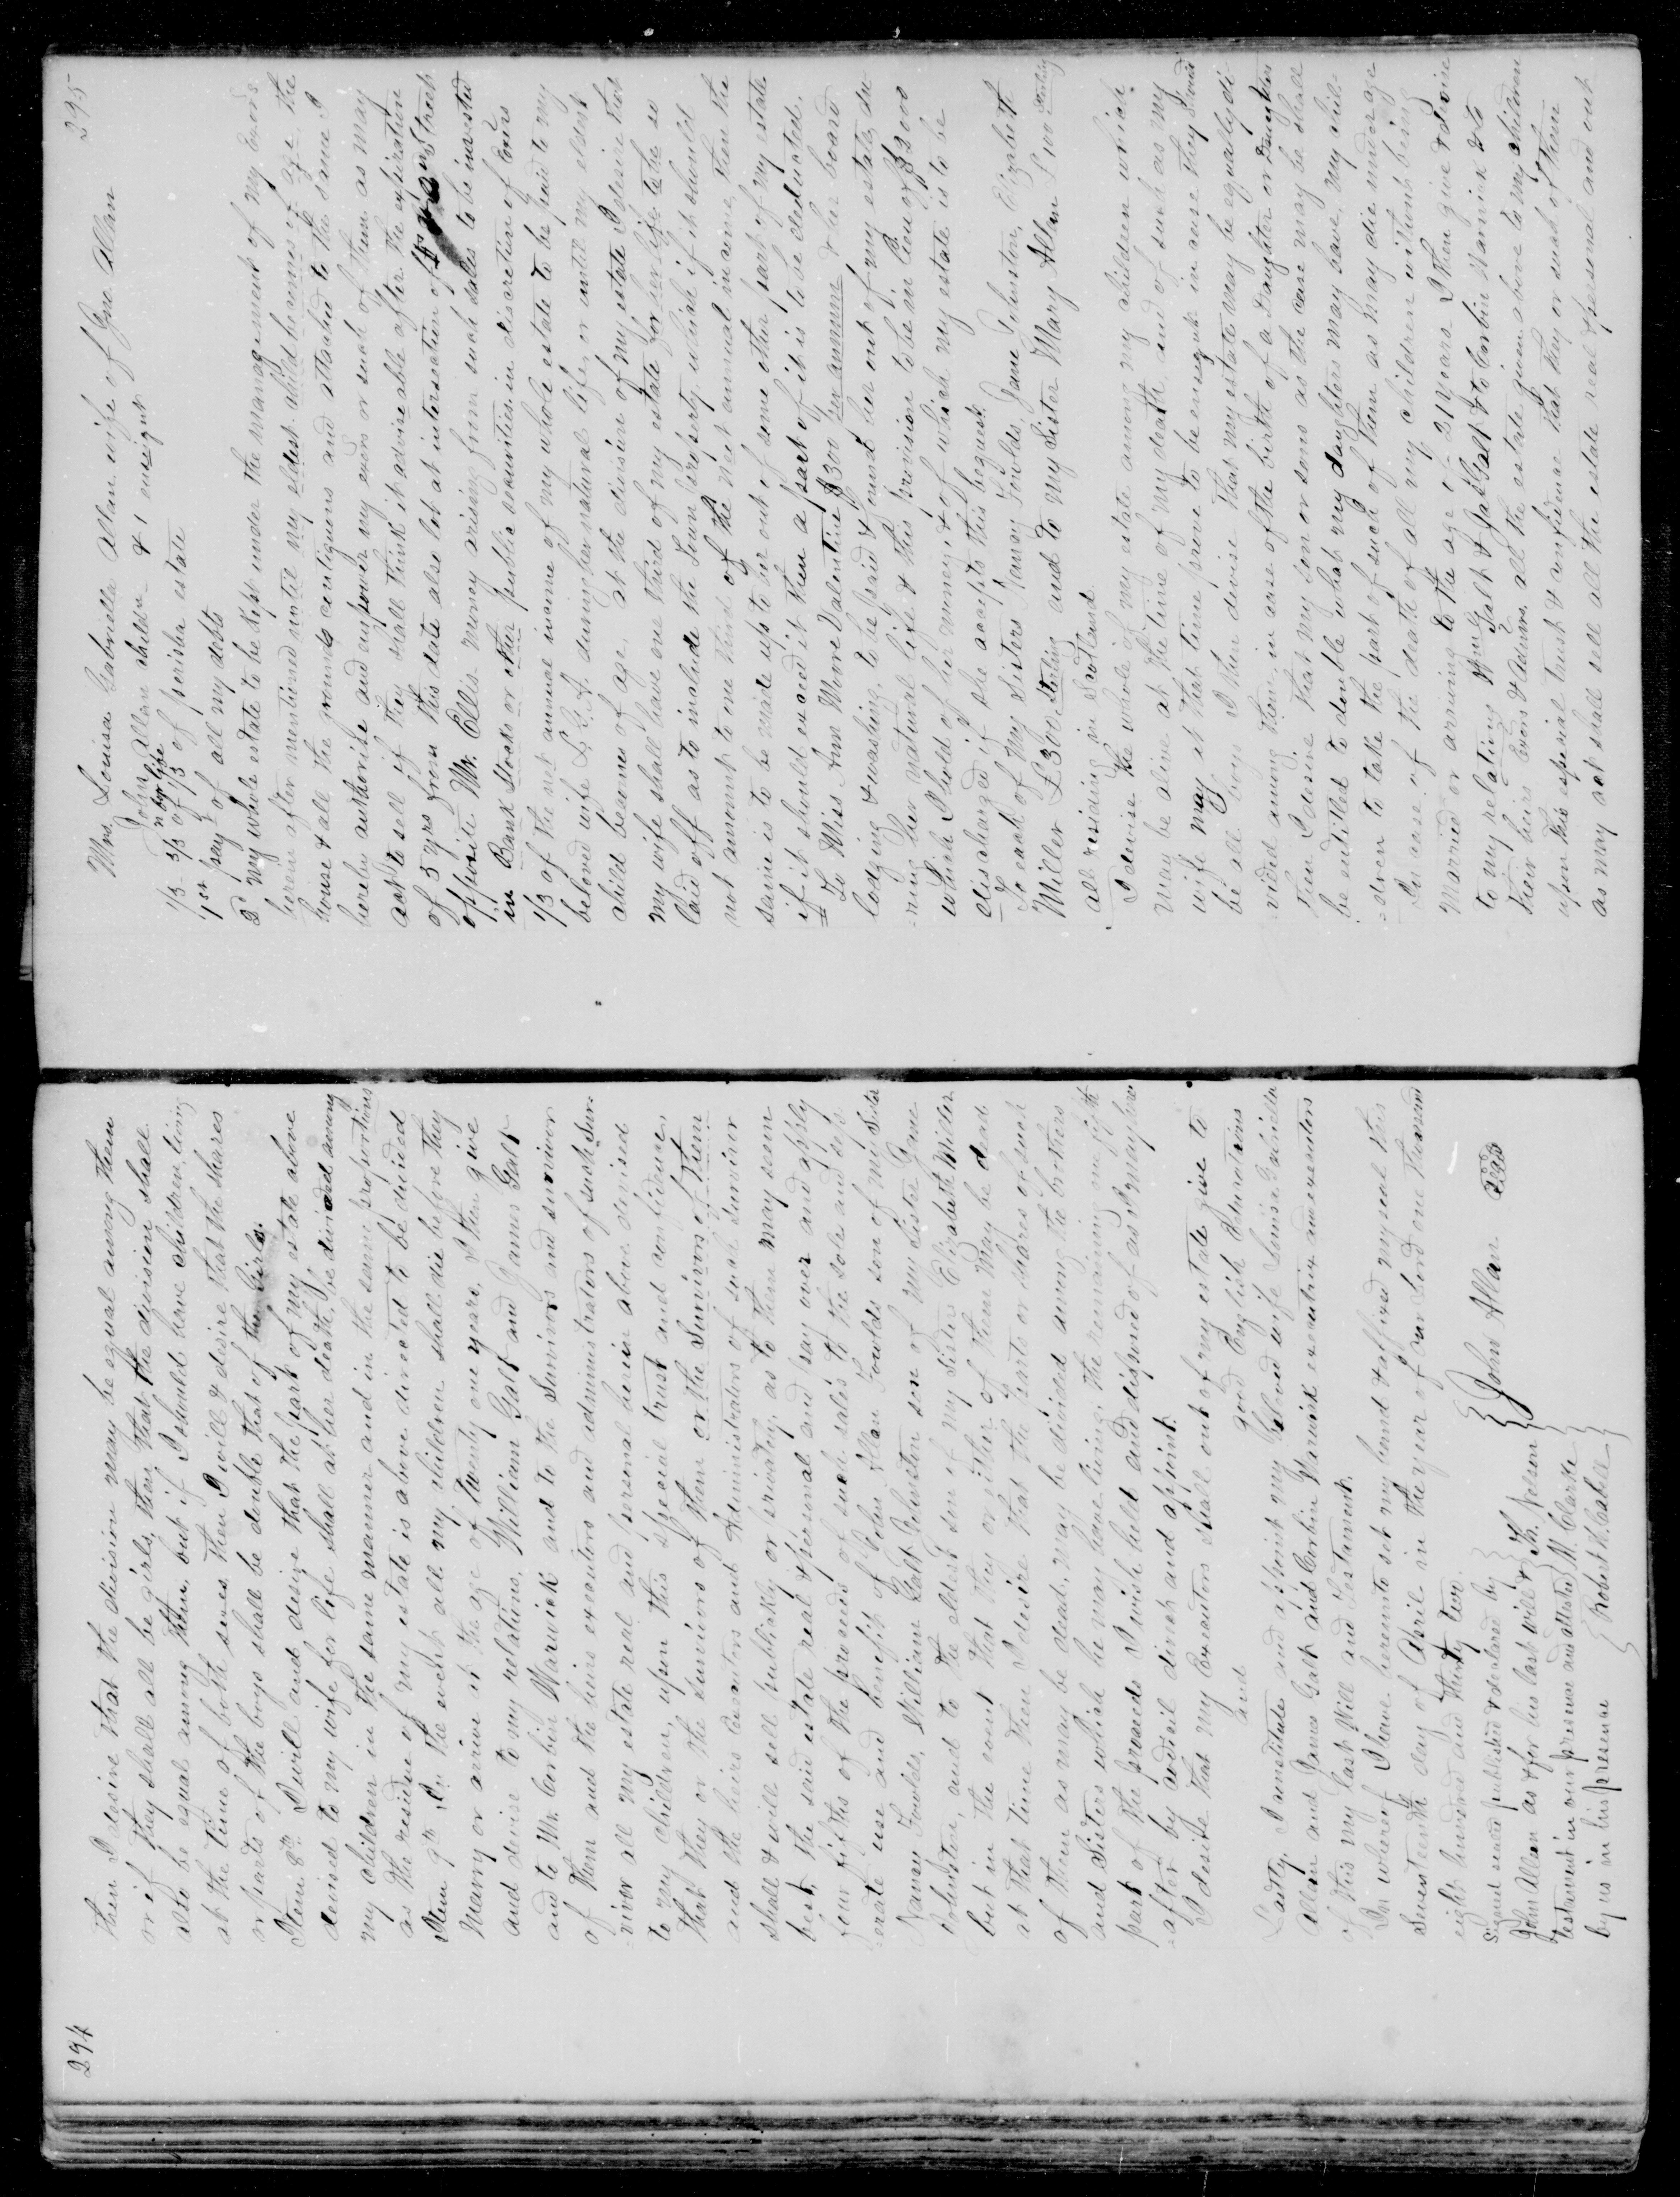 294
then I desire that the division may be equal among them
or if they shall all be girls, then that the division shall
also be equal among them, but if I should have children living
at the time of both sexes, then I will & desire that the shares
or parts of the boys shall be double that of the Girls.
Item 8th. I will and desire that the part of my estate above
devised to my wife for life shall at her death, be divided among
my children in the same manner and in the same proportions
as the residue of my estate is above directed to be divided
Item 9th. In the event all my children shall die before they
Marry or arrive at the age of twenty one years, I then give
and devise to my relations, William Galt and James Galt
and to Mr. Corbin Warwick and to the Survivors and survivor
of them and the heirs executors and administrators of such Sur-
-vivor all my estate real and personal herein above devised
to my children, upon this special trust and confidence,
that they or the survivors of them or the Survivor of them
and the heirs Executors and Administrators of such survivor
shall & will sell publickly or privately, as to them may seem
best, the said estate real & personal and pay over and apply
four fifths of the proceeds of such sales to the sole and sep-
-erate use and benefit of John Allan Fowlds son of my Sister
Nancy Fowlds, William Galt Johnston son of my Sister Jane
Johnston, and to the eldest son of my Sister Elizabeth Miller
but in the event that they or either of them may be dead
at that time then I desire that the parts or shares of such
of them as may be dead, may be divided among the brothers
and Sisters which he may have living; the remaining one fifth
part of the proceeds I wish held and disposed of as I may here
-after by codicil direct and appoint.
I desire that my Executors shall out of my estate give to
and good English Educations
Lastly I constitute and appoint my beloved wife Louisa Gabriella
Allan and James Galt and Corbin Warwick executrix and executors
of this my last Will and Testament.
In whereof I have hereunto set my hand & affixed my seal this
Seventeenth day of April in the year of our Lord one thousand
eight hundred and thirty two.
Signed sealed published & declared by
John Allan as & for his last will &
testament in our presence and attested
by us in his presence
Th. Nelson
M. Clarke
Robert H. Cabell
John Allan
295
Mrs. Louisa Gabriella Allan wife of Jno. Allan
John Allan children & 1 enseignt
1/3 3/3 of 1/3 of perisha estate
1st pay t of all my debts
2d My whole estate to be kept under the management of my Exors
herein after mentioned until my eldest child becomes of age. the
house & all the grounds contiguous and attached to the same I
hereby authorise and empower my exors or such of them as may
act to sell if they shall think it adviseable after the expiration
of 5 yrs from this date also lot at intersection of Street
opposite Mr. Ellis money arising from such sales to be invested
in Bank Stocks or other public securities. in discretion of Exors
1/3 of the net annual income of my whole estate to be paid to my
beloved wife L. G. A. during her natural life, or until my eldest
child becomes of age. at the division of my estate I desire that
my wife shall have one third of my estate for her life to be so
laid off as to include the Town property, which if it should
not amount to one third of the net annual income, then the
same is to be made up to her out of some other part of my estate
if it should exceed it then a part of it is to be deducted.
To Miss Ann Moore Valentine $300 per annum & her board
lodging & washing, to be paid & found her out of my estate, du-
-ring her natural life & this provision to be in lieu of $2000
which I hold of her money, & of which my estate is to be
discharged if she accepts this bequest
To each of my sisters Nancy Fowlds, Jane Johnston, Elizabeth
Miller £300. Sterling and to my Sister Mary Allan £100 Sterling
all residing in Scotland.
I devise the whole of my estate among my children which
may be alive at the time of my death, and of such as my
wife may at that time prove to be enseignt in case they should
be all boys I then devise that my estate may be equally di-
vided among them, in case of the birth of a Daughter or Daughters
then I desire that my son or sons as the case may be shall
be entitled to double what my daughters may have, my chil-
-dren to take the part of such of them as may die under age
In case of the death of all my children without being
Married or arriving to the age of 21 years I then give & devise
to my relations Wm. Galt & Jas Galt & to Corbin Warwick & to
their heirs Exors & Admors. all the estate given above to my children
upon this especial trust & confidence that they or such of them
as may act shall sell all the estate real & personal and out